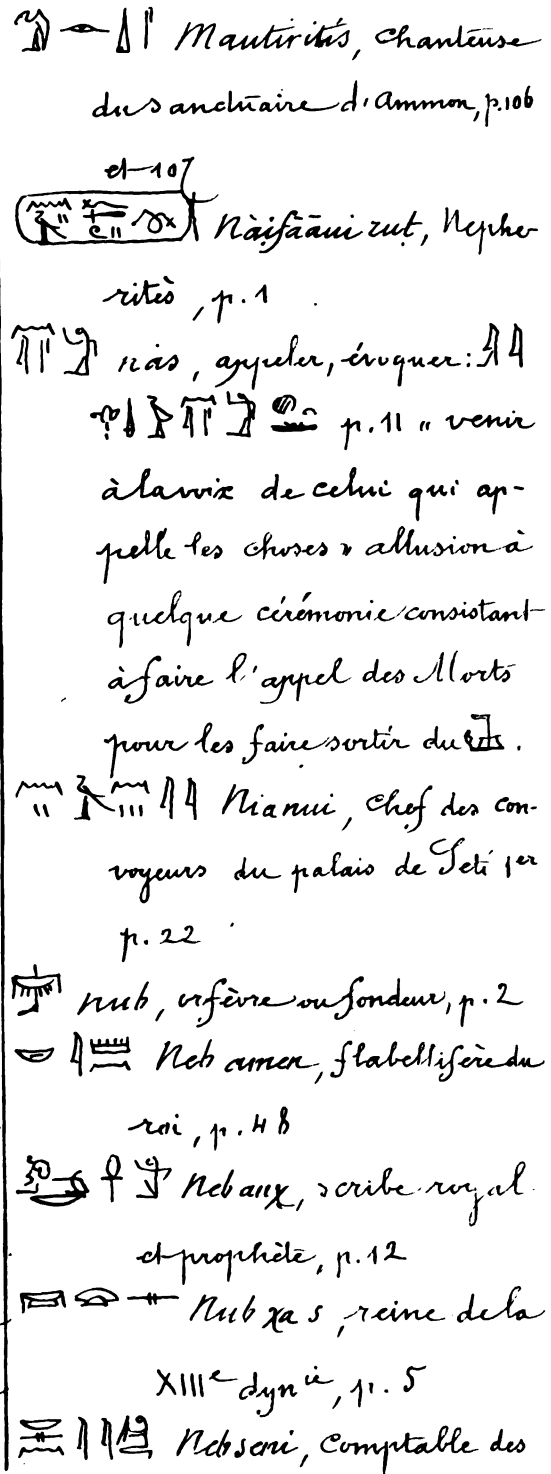 Mautiritis, chanteuse
du sanctuaire d'Ammon, p. 106
et 107
Nàifāāui rut, Nephe-
ritès, p. 1
nàs, appeler, évoquer:
p. 11 « venir
à la voix de celui qui ap-
pelle les choses » allusion à
quelque cérémonie consistant
à faire l'appel des Morts
pour les faire sortir du
Nianui, chef des con-
voyeurs du palais de Seti 1er
p. 22
nub, orfèvre ou fondeur, p. 2
Neb amen, flabellifère du
roi, p. 48
Nebanχ, scribe royal
et prophète, p. 12
Nub χa s, reine de la
XIIIe dynie, p. 5
Nebseni, Comptable des